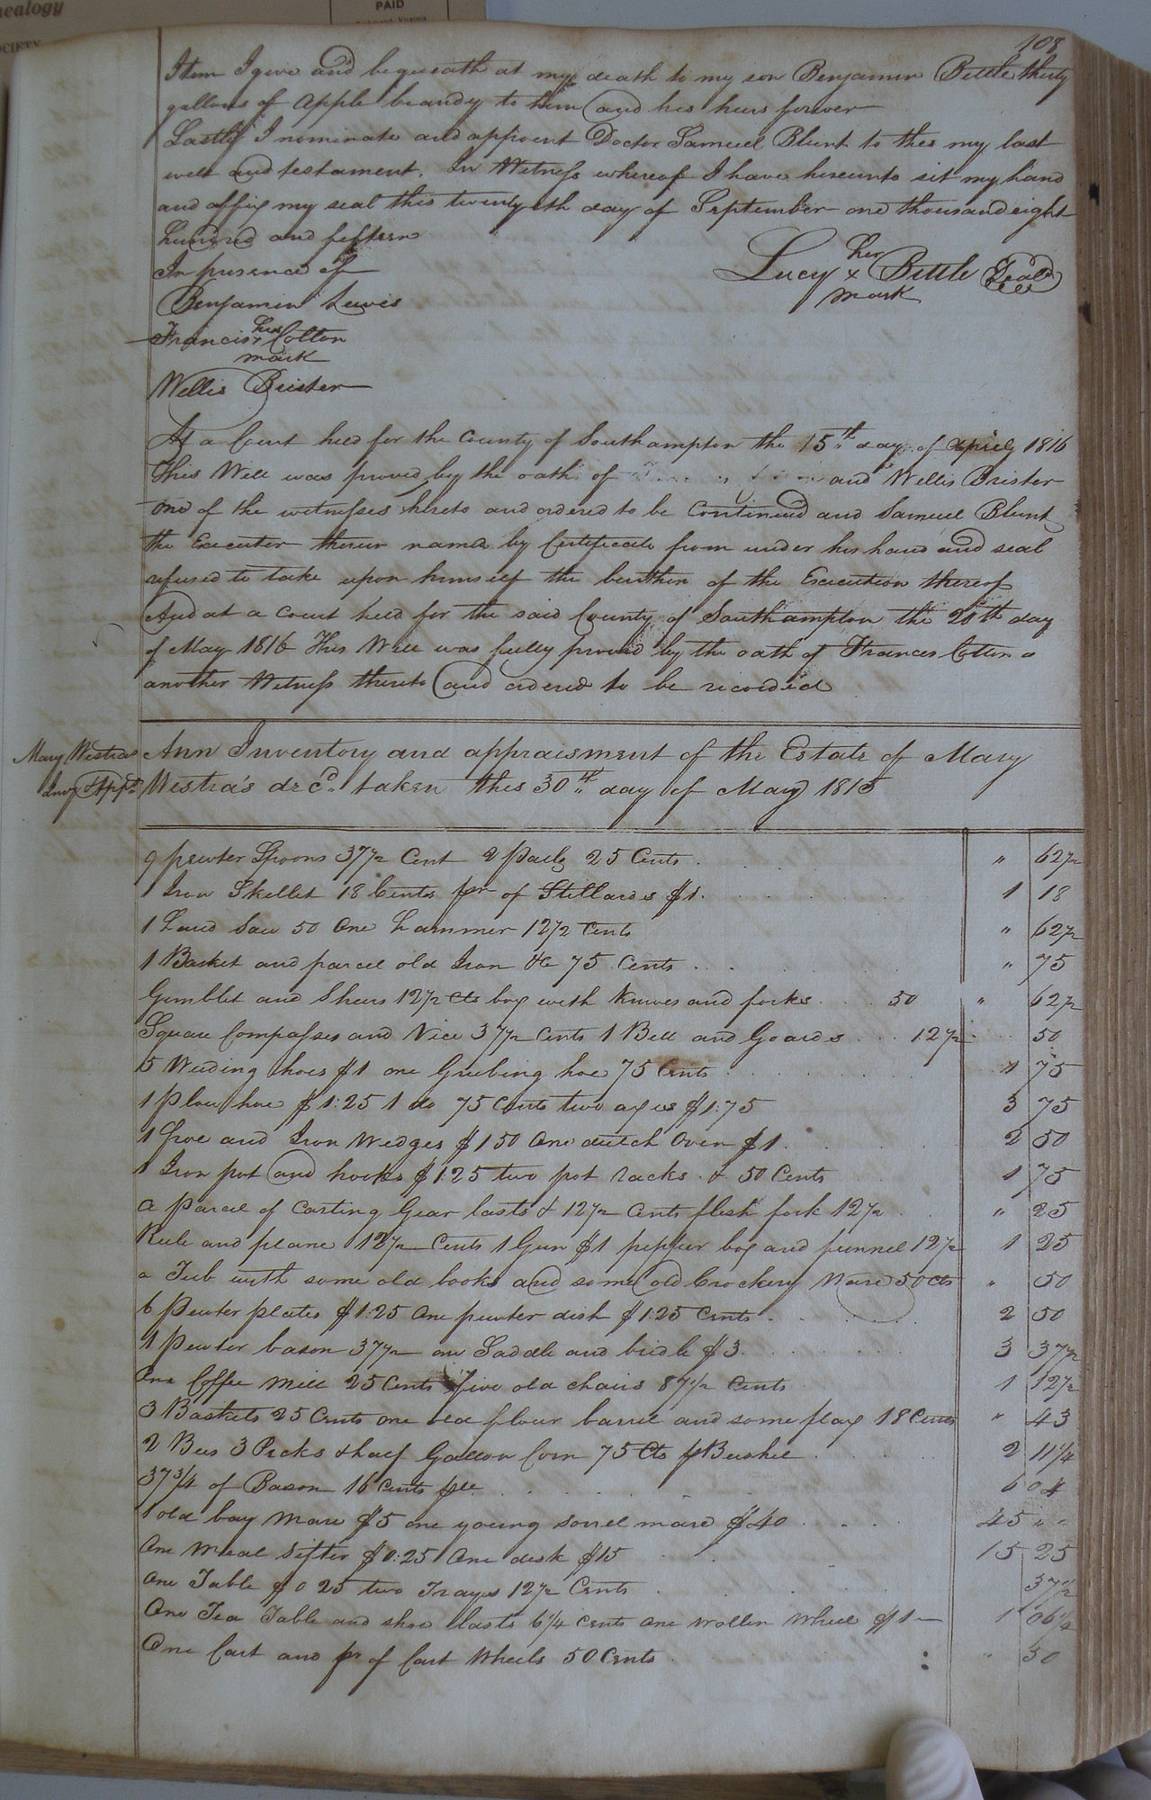 nealogy
OCIETY
PAID
108
Item I give and bequeath at my death to my son Benjamin Bittle thirty
gallons of apple brandy to him and his heirs forever
Lastly I nominate and appoint Doctor Samuel Blunt to this my last
will and testament. In Witness whereof I have hereunto sit my hand
and affix my seal this twenty 8th day of September one thousand eight
hundred and fifteen
In presence of
Lucy her x mark Bittle Seal
Benjamin Lewis
Francis his x mark Cotton
Willis Brister
At a Court held for the County of Southampton the 15th day of April 1816
This Will was proved by the oath of and Willis Brister
one of the witnesses hereto and ordered to be Continued and Samuel Blunt
the Executor therein named by Certificate from under his hand and seal
refused to take upon himself the burthen of the Execution thereof
And at a Court held for the said County of Southampton the 20th day
of May 1816 This Will was fully proved by the oath of Frances Cotton a
another Witness thereto and ordered to be recorded
Mary Westra's
Invy & Appt
Ann Inventory and appraisment of the Estate of Mary
Westra's decd. taken this 30th day of May 1815
9 pewter Spoons 37 1/2 Cent 2 Pails 25 Cents . " 62 1/2
1 Iron Skellet 18 Cents pr of Stillards $1 . 1 18
1 Hand Saw 50 One hammer 12 1/2 Cents " 62 1/2
1 Basket and parcel old Iron &c 75 Cents . " 75
Gimblet and Shears 12 1/2 cts box with Knives and forks . 50 " 62 1/2
Square Compasses and Vice 37 1/2 Cents 1 Bell and Goards . 12 1/2 50
5 Weeding hoes $1 one Grubing hoe 75 Cents . 1 75
1 Plow hoe $1:25 1 do 75 Cents two axes $1:75 3 75
1 Froe and Iron Wedges $1 50 One dutch Oven $1 . 2 50
1 Iron pot and hooks $1:25 two pot racks & 50 Cents 1 75
a Parcel of Carting Gear lasts & 12 1/2 Cents flesh fork 12 1/2 . " 25
Rule and plane 12 1/2 Cents 1 Gun $1 pepper box and funnel 12 1/2 1 25
a Tub with some old books and some old Crockery Ware 50 cts " 50
6 Pewter plates $1:25 One pewter dish $1:25 Cents . 2 50
1 Pewter bason 37 1/2 one Saddle and bridle $3 . 3 37 1/2
One Coffee mill 25 Cents Five old chairs 87 1/2 Cents 1 12 1/2
3 Baskets 25 Cents one old flour barrel and some flax 18 Cents " 43
2 Bus 3 Pecks & half Gallon Corn 75 Cts p Bushel . 2 11 1/4
37 3/4 of Bason 16 Cents p lb . 6 04
1 old bay Mare $5 one young sorrel mare $40 . 45 " "
One meal Sifter $0:25 One desk $15 . 15 25
One Table $0 25 two Trays 12 1/2 Cents . 37 1/2
One Tea Table and shoe lasts 6 1/4 cents One Wollen Wheel $1 1 06 1/4
One Cart and pr of Cart Wheels 50 Cents . " 50